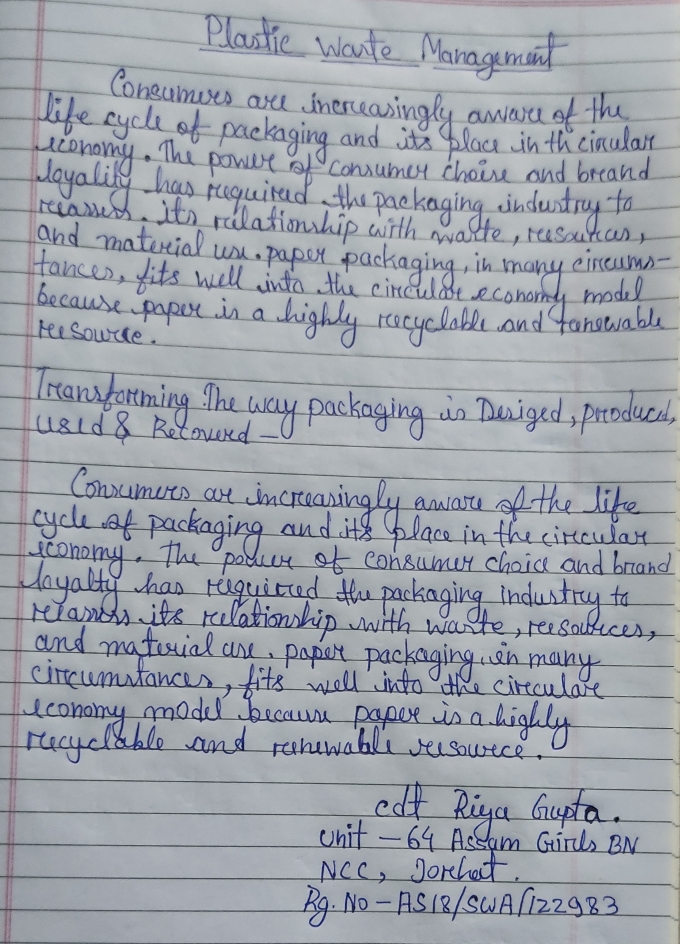 Plastic Waste Management
Consumers are increasingly aware of the
life cycle of packaging and its place in th circular
economy. The power of consumer choise and breand
loyality has required the packaging industry to
reassess its relationship with waste, resources,
and material use. paper packaging, in many circums-
tances, fits well into the circular economy model
because paper is a highly recyclable and renewable
resource.
Transforming The way packaging is Desiged, produced,
used & Recoverd -
Consumers are increasingly aware of the life
cycle of packaging and its place in the circular
economy. The power of consumer choice and brand
loyalty has required the packaging industry to
reassess its relationship with waste, resources,
and material use. paper packaging, in many
circumstances, fits well into the circular
economy model because paper is a highly
recyclable and renewable resource.
cdt Riya Gupta.
Unit - 64 Assam Girls BN
NCC, Jorhat.
Rg. No - AS18/SWA/122983